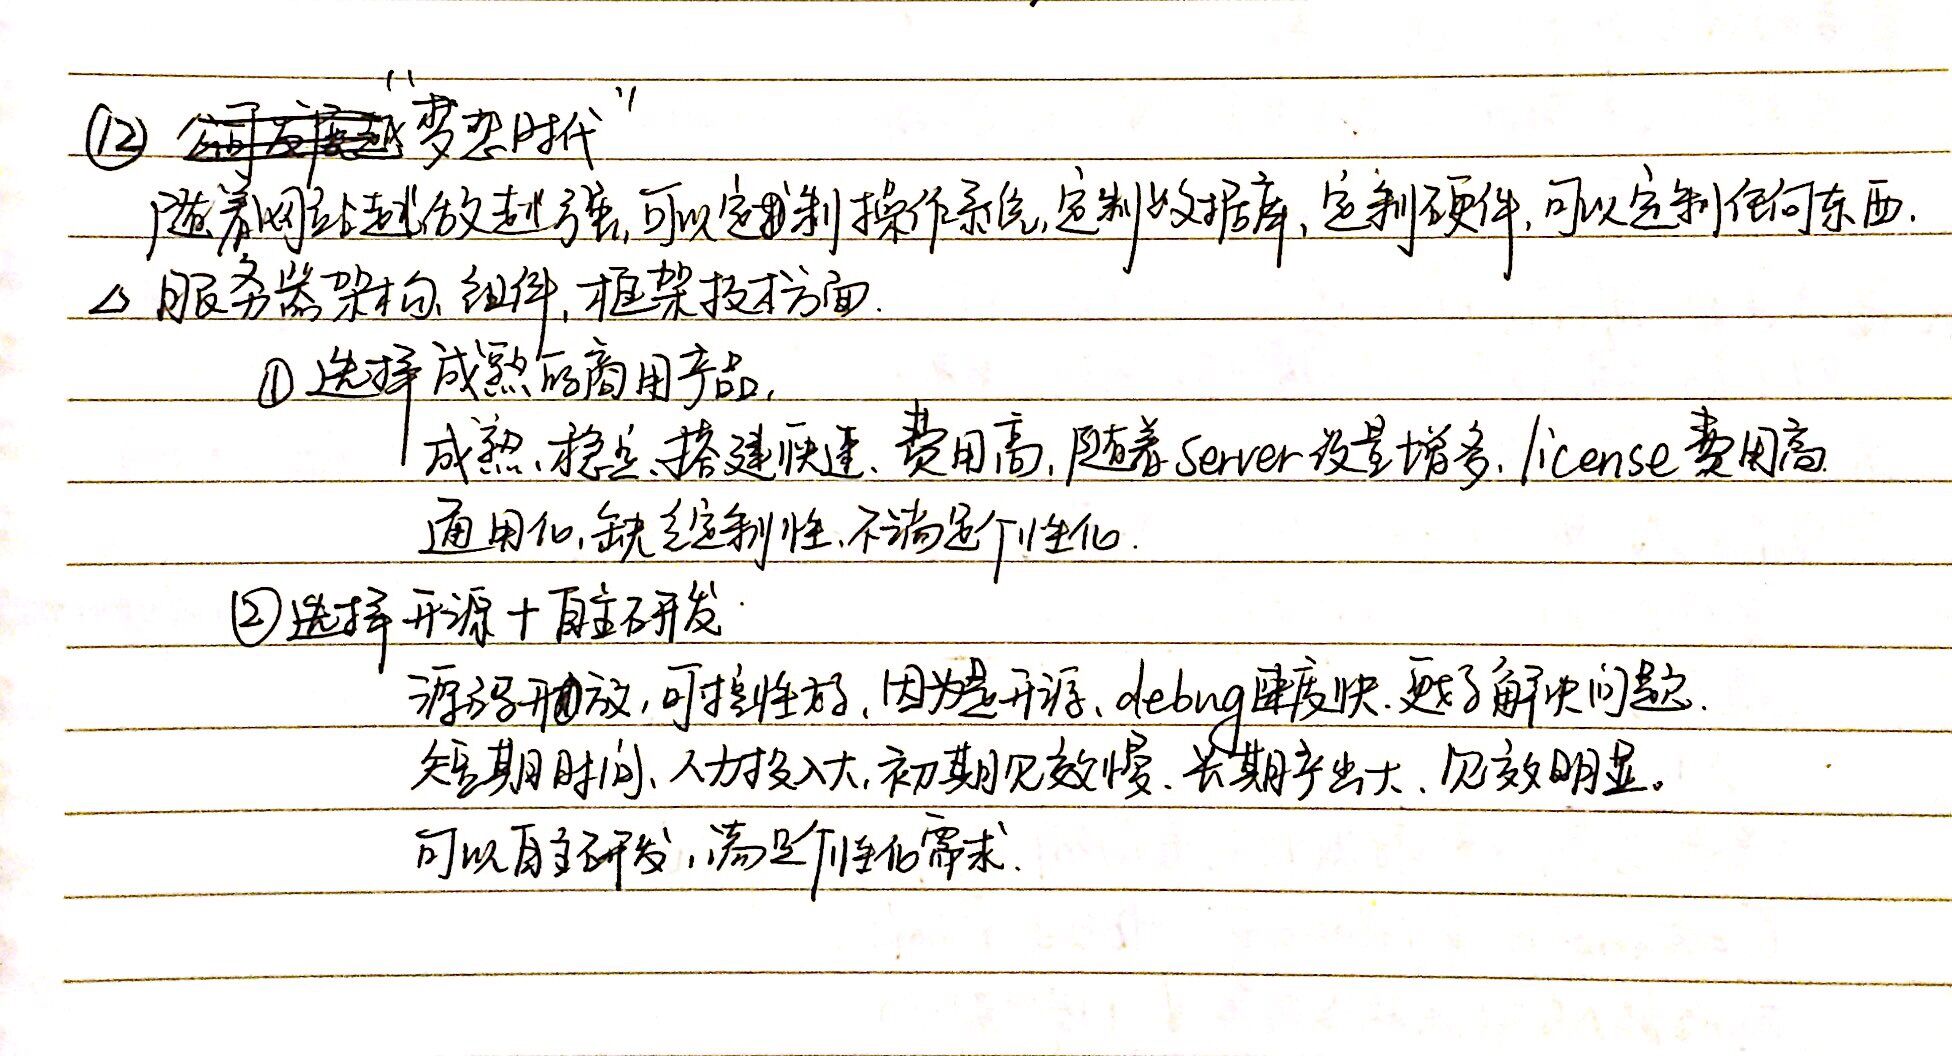 ⑫ "梦想时代"
随着网站越做越强,可以定制操作系统,定制数据库,定制硬件,可以定制任何东西.
△ 服务器架构、组件,框架技术方面.
① 选择成熟的商用产品,
成熟、稳定、搭建快速、费用高,随着server设量增多,license费用高.
通用化,缺乏定制性,不满足个性化.
② 选择开源+自主研发.
源码开放,可控性好,因为是开源、debug速度快.更好了解决问题.
短期时间、人力投入大,初期见效慢、长期产出大、见效明显。
可以自主研发,满足个性化需求.